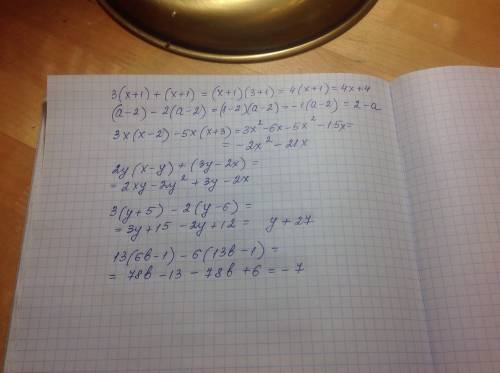 3(x+1) + (x+1) = (x+1)(3+1) = 4(x+1) = 4x+4
(a-2) - 2(a-2) = (1-2)(a-2) = -1(a-2) = 2-a
3x(x-2) - 5x(x+3) = 3x² - 6x - 5x² - 15x =
= -2x² - 21x
2y(x-y) + (3y-2x) =
= 2xy - 2y² + 3y - 2x
3(y+5) - 2(y-6) =
= 3y+15 - 2y+12 = y+27
13(6b-1) - 6(13b-1) =
= 78b - 13 - 78b + 6 = -7